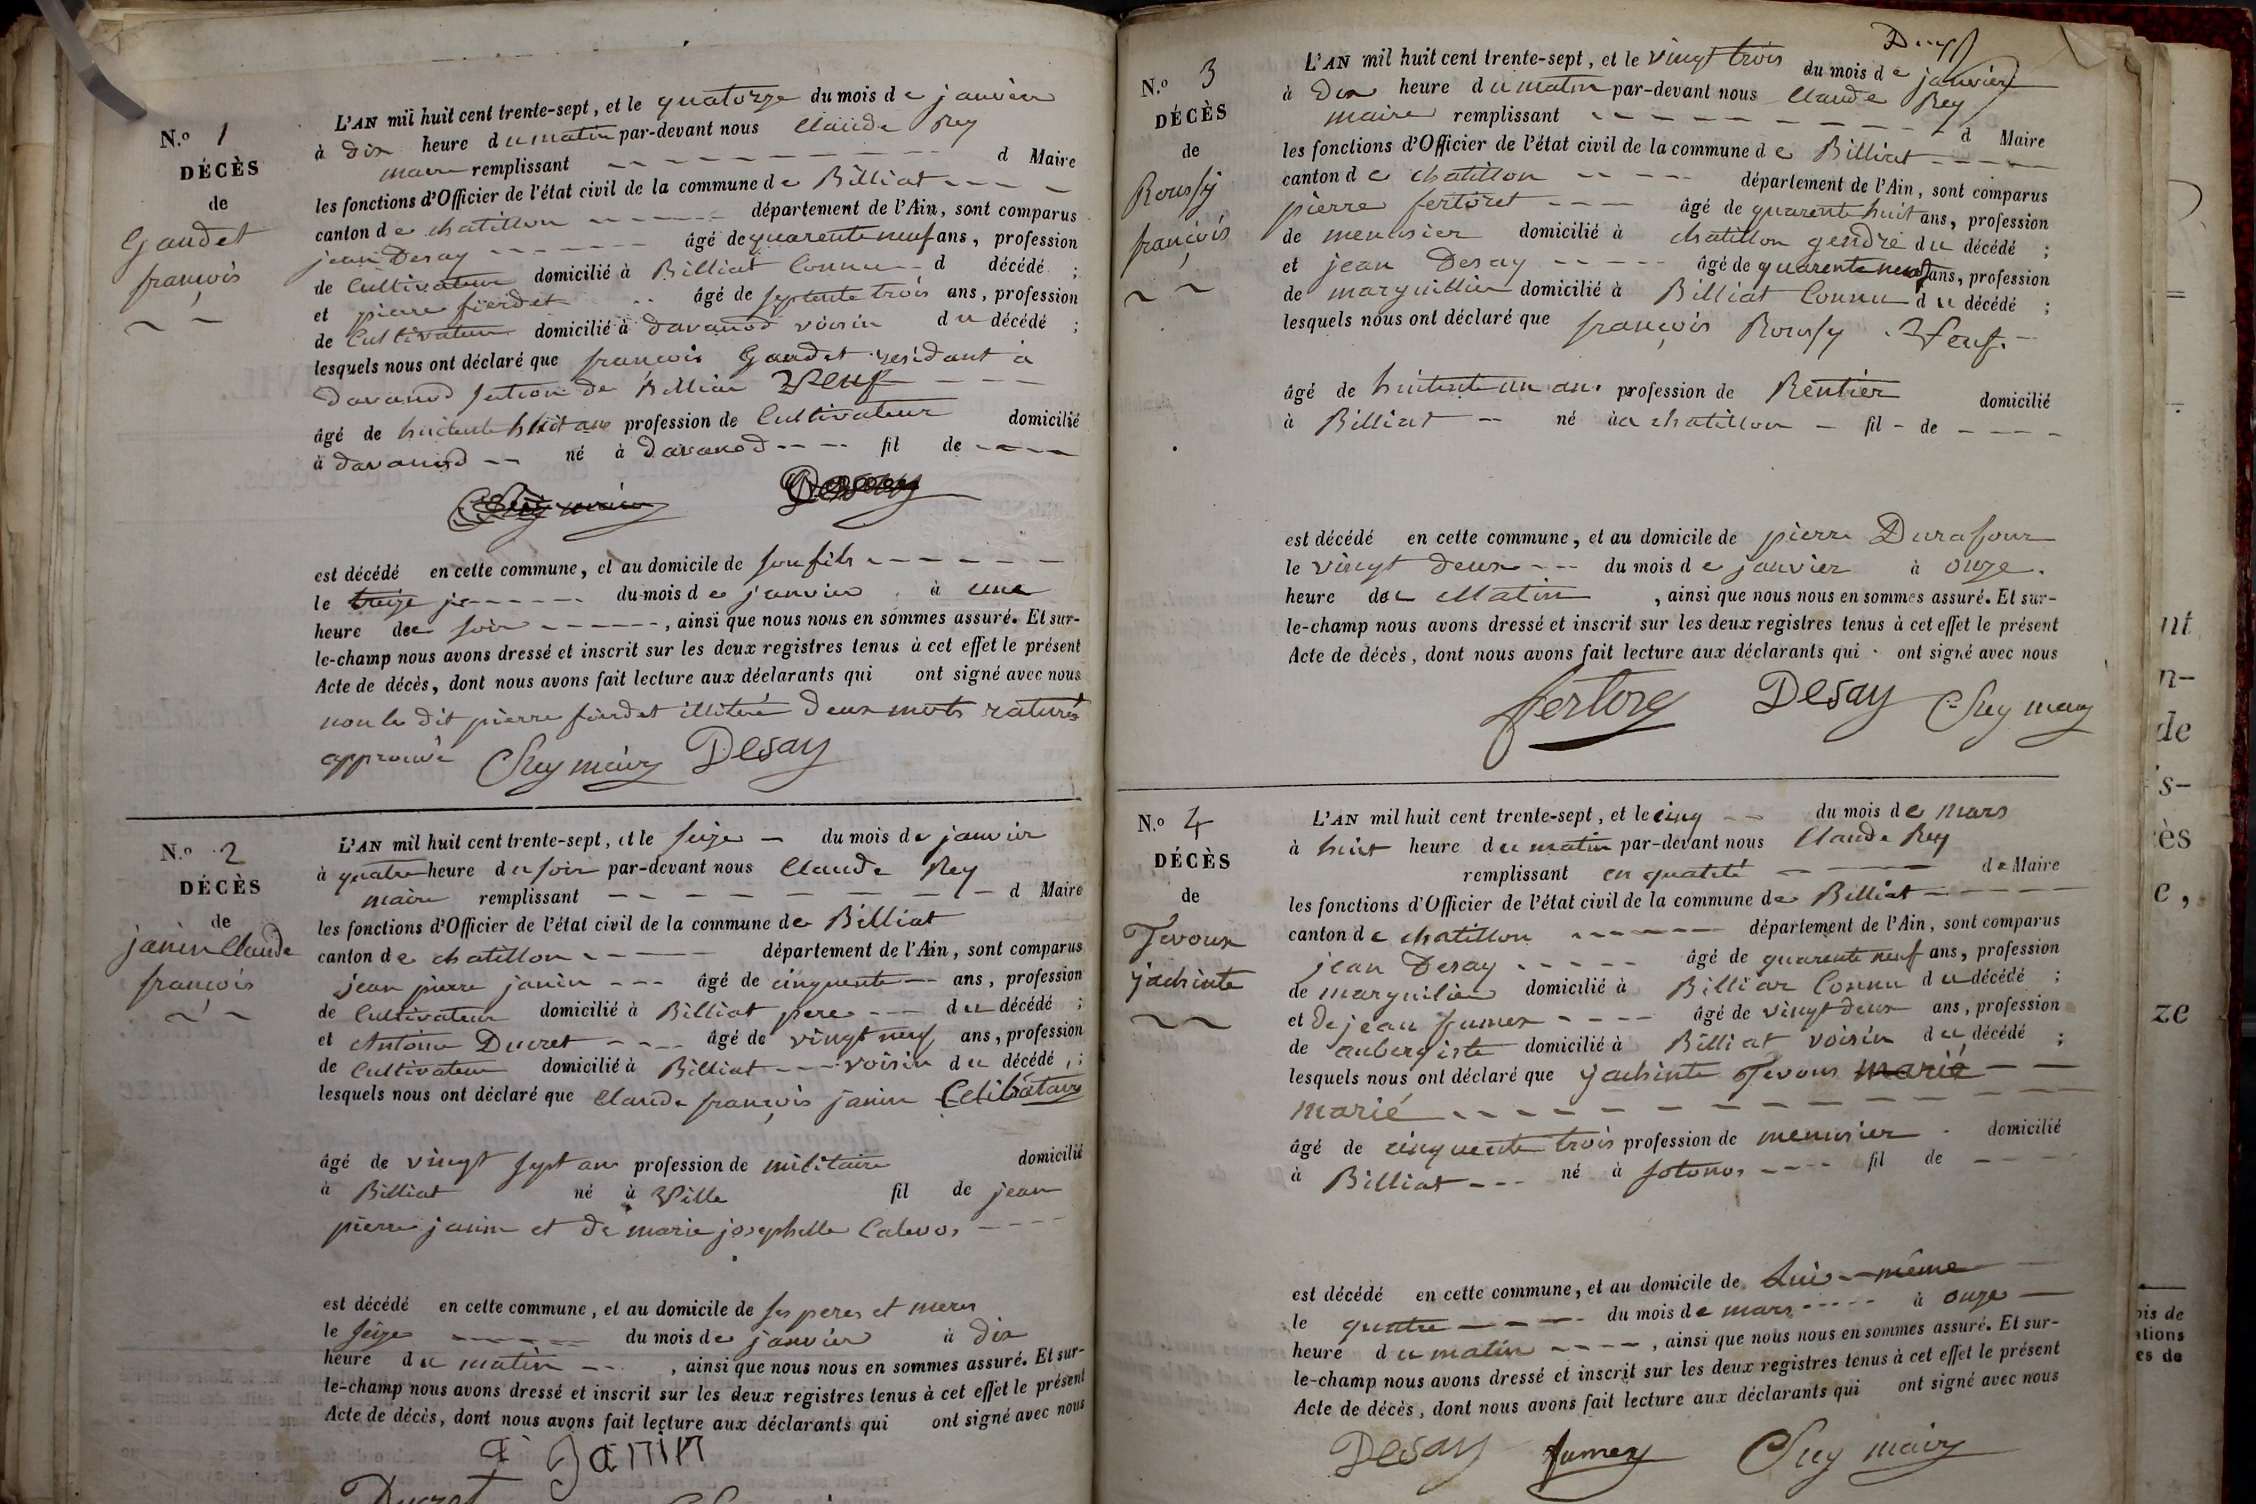 N.o 1
DÉCÈS
de
Gaudet
françois
L'AN mil huit cent trente-sept, et le quatorze du mois de janvier
à dix heure du matin par-devant nous Claude Rey
maire remplissant d Maire
les fonctions d'Officier de l'état civil de la commune de Billiat
canton de chatillon département de l'Ain, sont comparus
jean Desay âgé de quarente neuf ans, profession
de Cultivateur domicilié à Billiat Connu d décédé ;
et pierre fierdet âgé de septente trois ans, profession
de Cultivateur domicilié à davanod voisin du décédé ;
lesquels nous ont déclaré que françois Gaudet residant à
davanod section de Billiat Veuf
âgé de huitente huit ans profession de Cultivateur domicilié
à davanod né à davanod fil de
est décédé en cette commune, et au domicile de son fils
le treize du mois de janvier à une
heure du soir, ainsi que nous nous en sommes assuré. Et sur-
le-champ nous avons dressé et inscrit sur les deux registres tenus à cet effet le présent
Acte de décès, dont nous avons fait lecture aux déclarants qui ont signé avec nous
non le dit pierre fierdet illitéré deux mots raturés
approuvé CRey maire Desay
N.o 2
DÉCÈS
de
janin Claude
françois
L'AN mil huit cent trente-sept, et le seize du mois de janvier
à quatre heure du soir par-devant nous Claude Rey
maire remplissant d Maire
les fonctions d'Officier de l'état civil de la commune de Billiat
canton de chatillon département de l'Ain, sont comparus
jean pierre janin âgé de cinquente ans, profession
de Cultivateur domicilié à Billiat pere du décédé ;
et Antoine Ducret âgé de vingt neuf ans, profession
de Cultivateur domicilié à Billiat voisin du décédé ;
lesquels nous ont déclaré que Claude françois janin Celibataire
âgé de vingt sept ans profession de militaire domicilié
à Billiat né à Ville fil de jean
pierre janin et de marie josephelle
est décédé en cette commune, et au domicile de ses peres et meres
le seize du mois de janvier à dix
heure du matin, ainsi que nous nous en sommes assuré. Et sur-
le-champ nous avons dressé et inscrit sur les deux registres tenus à cet effet le présent
Acte de décès, dont nous avons fait lecture aux déclarants qui ont signé avec nous
Janin
Ducret
N.o 3
DÉCÈS
de
Roussy
françois
L'AN mil huit cent trente-sept, et le vingt trois du mois de janvier
à dix heure du matin par-devant nous Claude Rey
maire remplissant d Maire
les fonctions d'Officier de l'état civil de la commune de Billiat
canton de chatillon département de l'Ain, sont comparus
pierre fertoret âgé de quarente huit ans, profession
de menusier domicilié à chatillon gendre du décédé ;
et jean Desay âgé de quarente neuf ans, profession
de marguillier domicilié à Billiat Connu du décédé ;
lesquels nous ont déclaré que françois Roussy Veuf
âgé de huitente un ans profession de Rentier domicilié
à Billiat né à chatillon fil de
est décédé en cette commune, et au domicile de pierre Durafour
le vingt deux du mois de janvier à onze
heure du Matin, ainsi que nous nous en sommes assuré. Et sur-
le-champ nous avons dressé et inscrit sur les deux registres tenus à cet effet le présent
Acte de décès, dont nous avons fait lecture aux déclarants qui ont signé avec nous
Desay CRey maire
N.o 4
DÉCÈS
de
Jevoux
jachinte
L'AN mil huit cent trente-sept, et le cinq du mois de mars
à huit heure du matin par-devant nous Claude Rey
remplissant en qualité de Maire
les fonctions d'Officier de l'état civil de la commune de Billiat
canton de chatillon département de l'Ain, sont comparus
jean Desay âgé de quarente neuf ans, profession
de marguilier domicilié à Billiat Connu du décédé ;
et de jean Jumex âgé de vingt deux ans, profession
de aubergiste domicilié à Billiat voisin du décédé ;
lesquels nous ont déclaré que jachinte Jevoux marié
marié
âgé de cinquente trois profession de menusier domicilié
à Billiat né à sotonos fil de
est décédé en cette commune, et au domicile de Lui-même
le quatre du mois de mars à onze
heure du matin, ainsi que nous nous en sommes assuré. Et sur-
le-champ nous avons dressé et inscrit sur les deux registres tenus à cet effet le présent
Acte de décès, dont nous avons fait lecture aux déclarants qui ont signé avec nous
Desay Jumex CRey maire